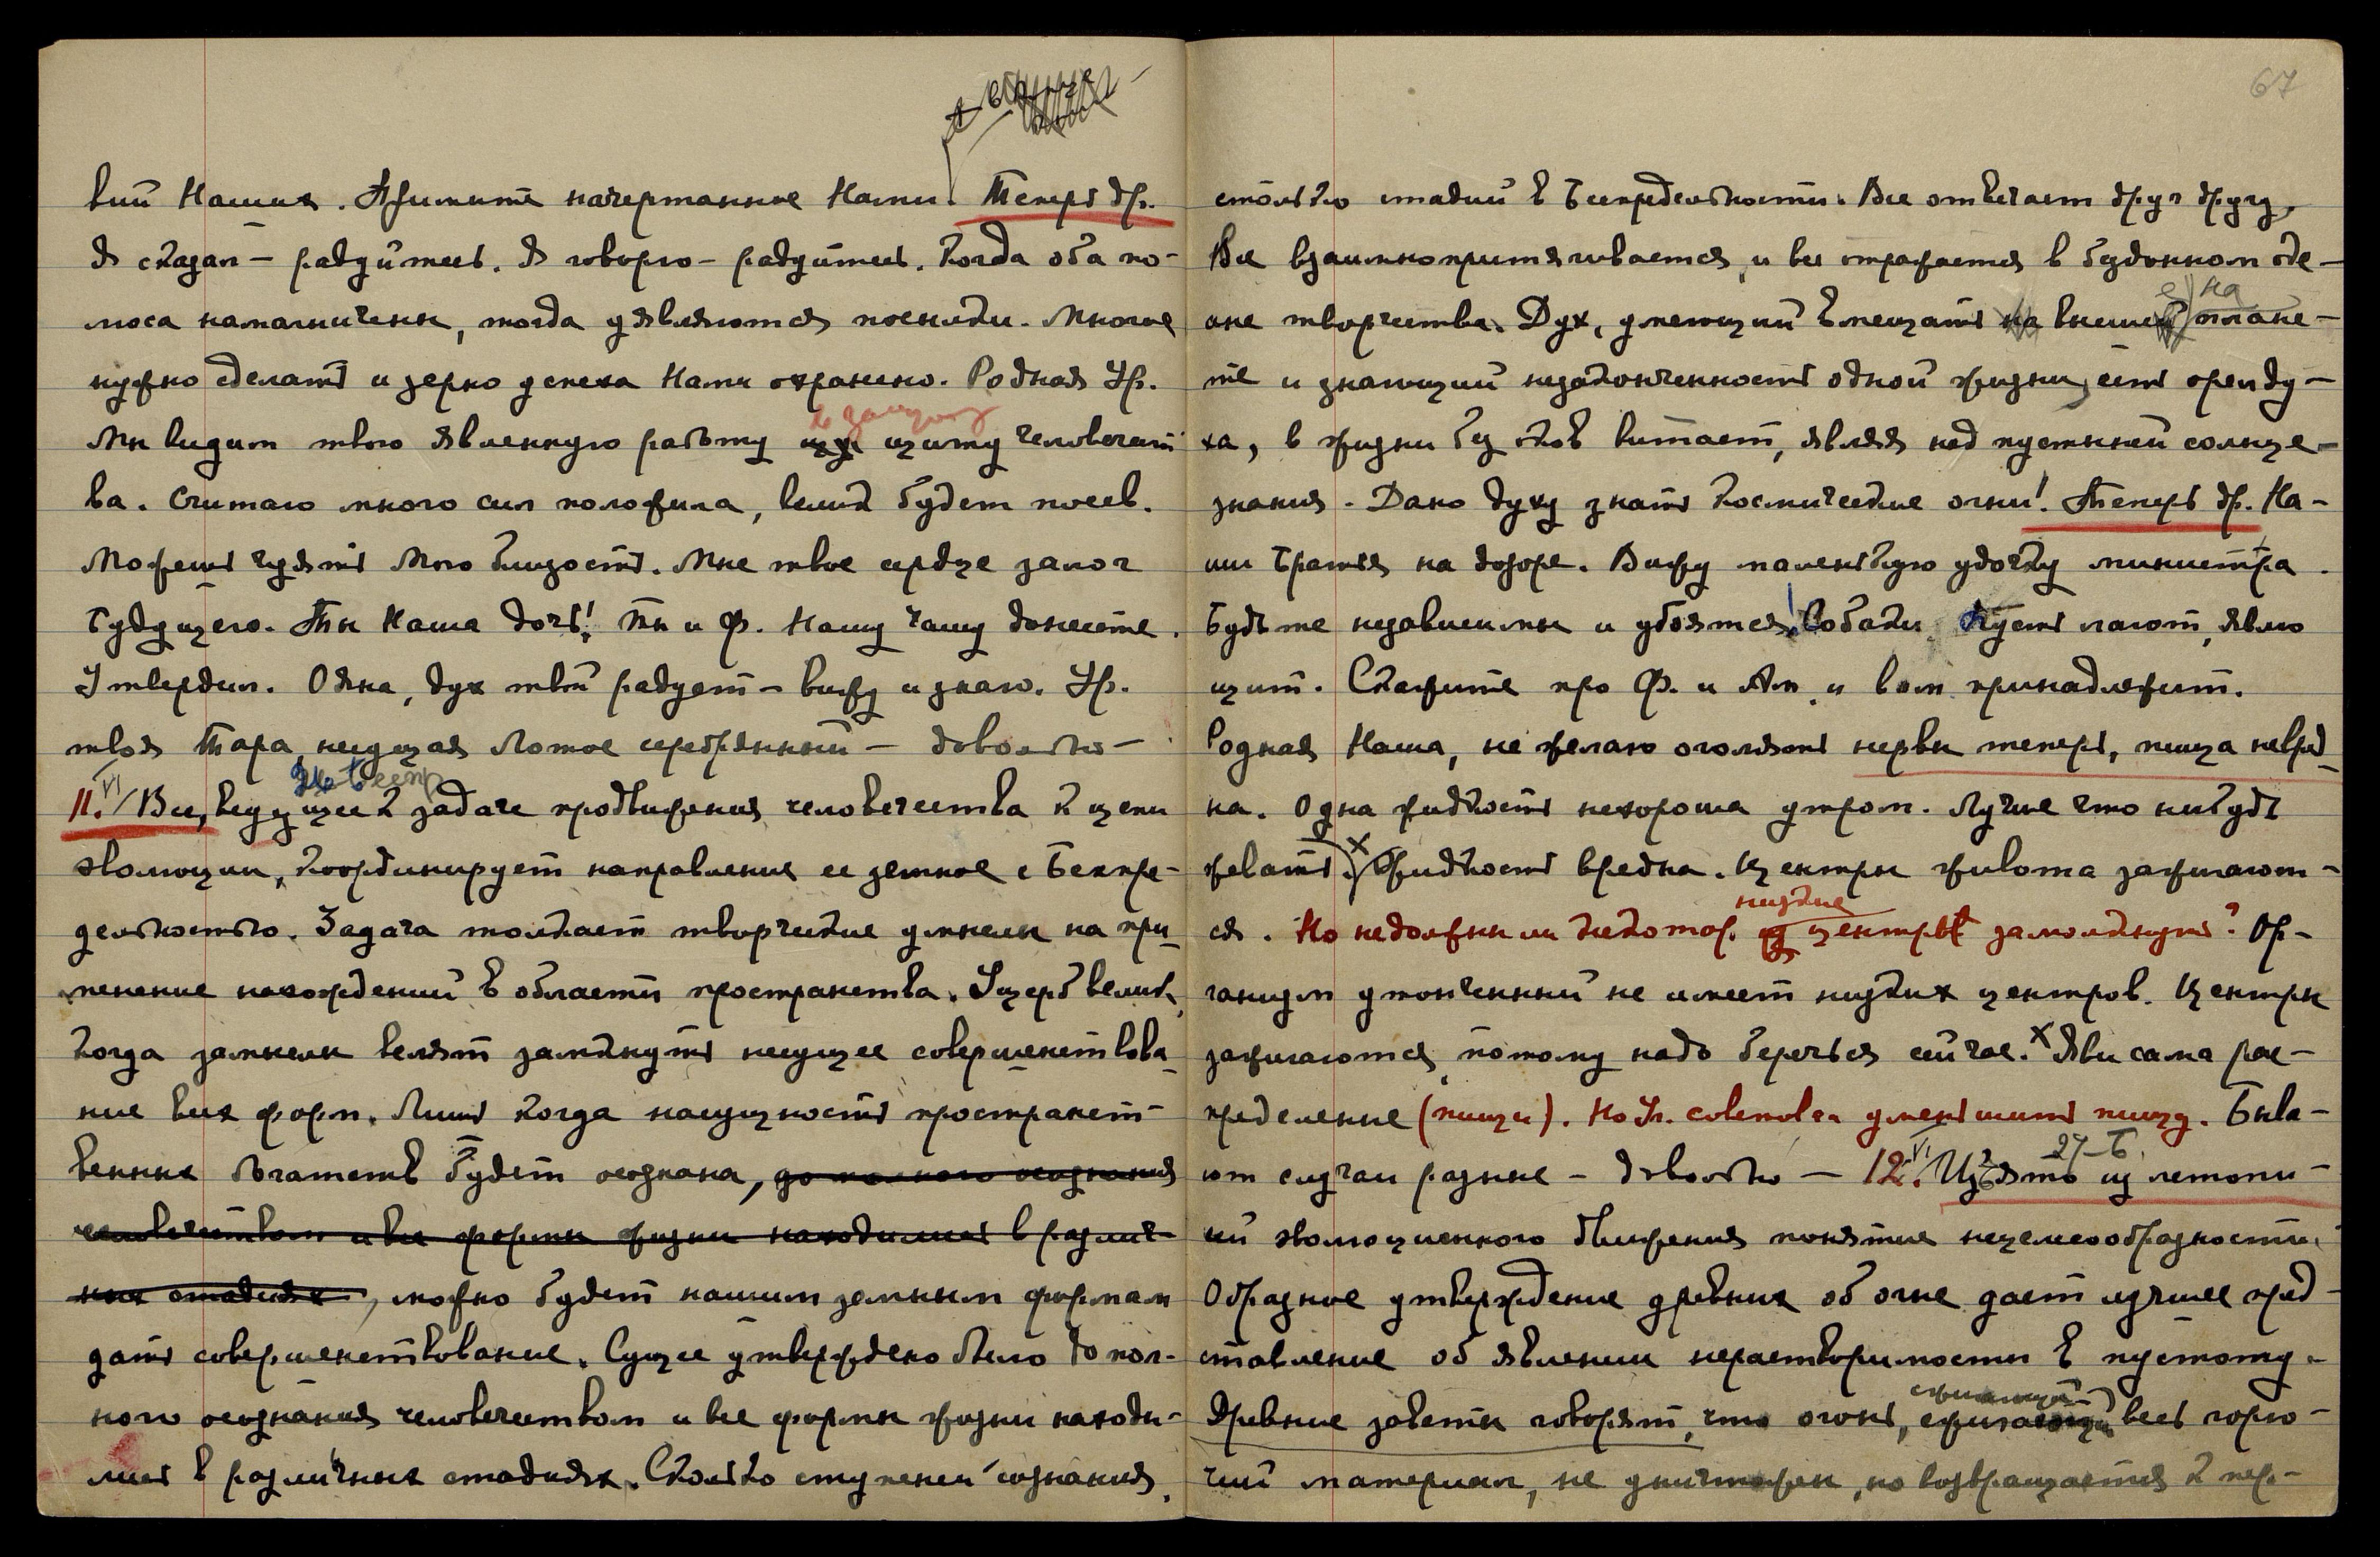 вий Наших. Примите начертанное Нами. Теперь др.
Я сказал — радуйтесь. Я говорю — радуйтесь. Когда оба по-
люса намагничены, тогда уявляются посылки. Многое
нужно сделать и зерно успеха Нами охранено. Родная Ур.
в защиту
Мы видим твою явленную работу щиту человечест
ва. Считаю много сил положила, велик будет посев.
Можешь чуять Мою близость. Мне твое сердце залог
будущего. Ты Наша дочь! Ты и Ф. Нашу чашу донесете.
Утвердил. Одна, дух твой радует — вижу и знаю. Ур.
твоя Тара, несущая Лотос серебрянный — довольно —
11.VI/ Все, ведущее к задаче продвижения человечества к цепи
эволюции, координирует направление ее земное с Беспре-
дельностью. Задача толкает творческие умыслы на при
менение нахождений в области пространства. Ущерб велик,
когда замыслы велят замкнуть несущее совершенствова
ние всех форм. Лишь когда насущность пространст-
венных богатств будет осознана, до полного осознания
человечеством и все формы жизни находились в различ-
ных стадиях, можно будет нашим земным формам
дать совершенствование. Сущее утверждено было до пол-
ного осознания человечеством и все формы жизни находи-
лись в различных стадиях. Сколько ступеней сознания,
67
столько стадий в Беспредельности. Все отвечает друг другу,
Все взаимнопритягивается, и все отражается в бездонном оке-
е на
ане творчества. Дух, умеющий вмещать на внешней плане-
те и знающий незаконченность одной жизни, есть орел ду-
ха, в жизни без оков витает, являя над пустыней солнце-
знания. Дано духу знать космические огни! Теперь др. На-
ши Братья на дозоре. Вижу маленькую удочку министра.
Будьте независимы и убоятся! Собаки пусть лают, явлю
щит. Скажите про Ф. и Ам. и вам принадлежит.
Родная Наша, не желаю оголять нервы теперь, пища невред
на. Одна жидкость нехороша утром. Лучше что нибудь
жевать. Жидкость вредна. Центры живота зажигают-
низкие
ся. Но недолжны ли некотор. центры замолкнуть? Ор-
ганизм утонченный не имеет низких центров. Центры
зажигаются, потому надо беречься сейчас. Яви сама рас-
пределение (пищи). Но Уч. советовал уменьшить пищу. Быва-
ют случаи разные — довольно — 12.VI. Изъято из летопи-
сий эволюционного движения понятие нецелесообразности.
Образное утверждение древних об огне дает лучшее пред-
ставление об явлении нерастворимости в пустоту.
Древние заветы говорят, что огонь, сжигающий весь горю-
чий материал, не уничтожен, но возвращается к пер-